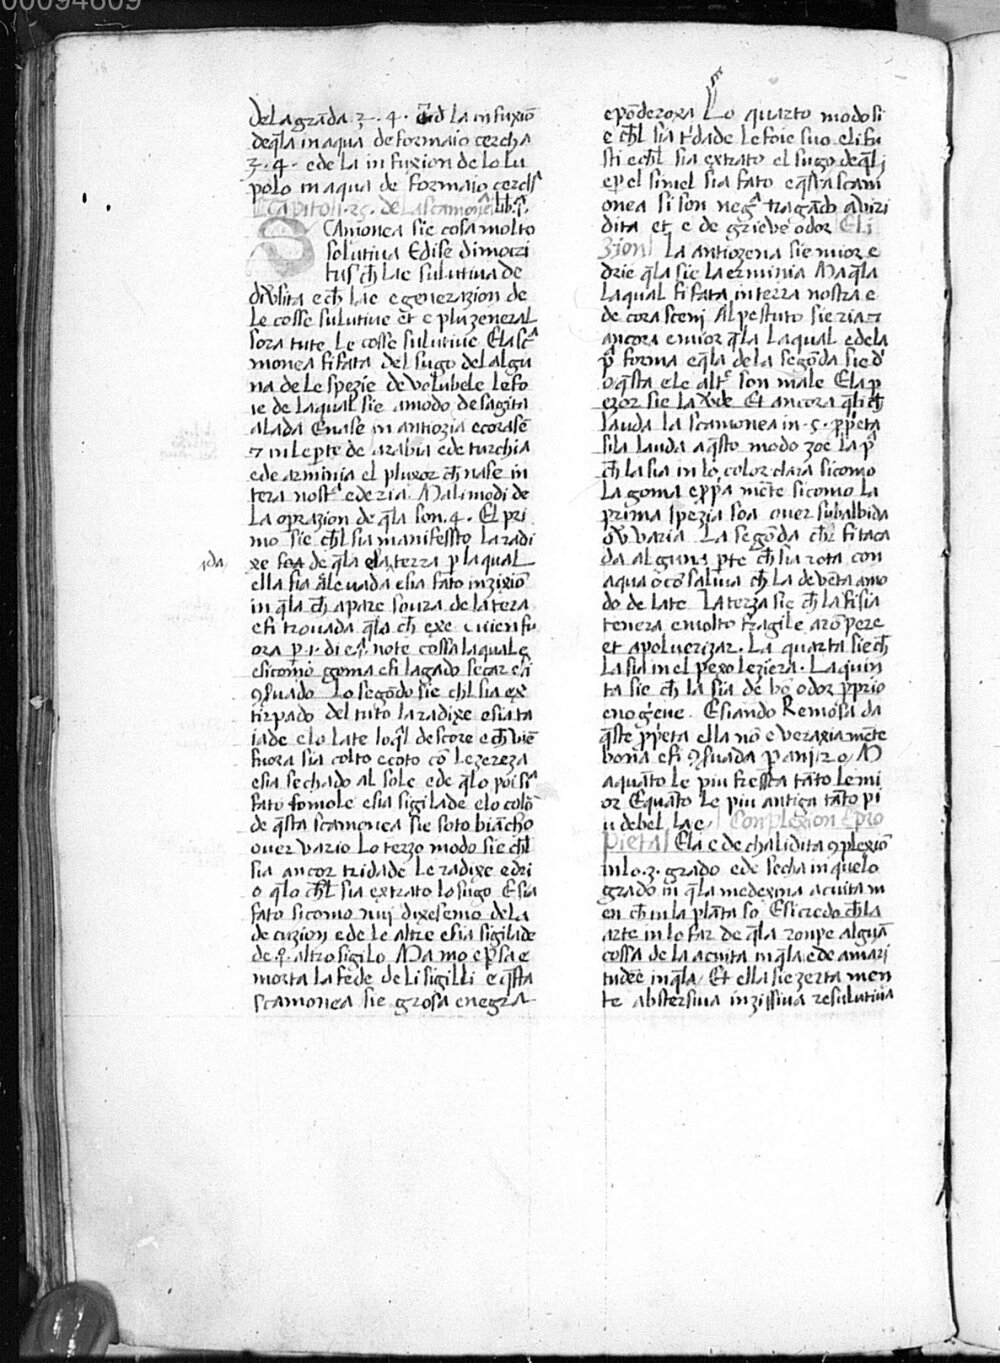 00094609
de la grãda ʒ · 4 · Et d la infuxiõ
de q̃la in aqua de formaio cercha
ʒ · 4 · e de la infuxion de lo lu
polo in aqua de formaio cerch
Capitoli · 25 · de la scamonea lib. p.
SCamonea sie cosa molto
solutiua E dise dimocri
tus ch̃ la e sulutiua de
diũsita e ch̃ la e e generazion de
le cosse sulutiue et e plu zeneral
sora tute le cosse sulutiue E la sca
monea si fata del sugo de l algu
na de le spezie de volubele le fo
ie de la qual sie a modo de sagita
alada E nase in antiozia e corase
⁊ in le p̱te de arabia e de turchia
e de arminia el pluxor ch̃ nase in
tera nostᵃ e de ria · Ma li modi de
la oprazion de q̃la son · 4 · El pri
mo sie ch̃l sia manifessto la radi
xe soa de q̃la e la terra p̱ la qual
ella sia alleuada e sia fato inzixiõ
in q̃la ch̃ apare soura de la tera
e si trouada q̃la ch̃ exe e vien fu
ora p̱ · 1 · di e · 1 · note cossa la qual e
sicomo goma e si lagado secar e si
9s̃uado Lo segõdo sie chl sia ex
tirpado del tuto la radixe e sia ta
iade e lo late lo q̃l descore e ch̃ viẽ
fuora sia colto e coto cõ lezereza
e sia sechado al sole e de q̃lo poi si
fato fomole e sia sigilade e lo colõ
de q̃sta scamonea sie soto biancho
ouer vario Lo terzo modo sie ch̃l
sia ancor tridade le radixe e dri
o q̃lo ch̃l sia extrato lo sugo E sia
fato sicomo nui dixesemo de la
decuzion e de le altre e sia sigilade
de · q · altro sigilo Ma mo e p̱sa e
morta la fede de li sigilli e q̃sta
scamonea sie grosa e negra
e põderoxa Lo quarto modo si
e ch̃l sia tᵢdade le foie suo e li fu
sti e ch̃l sia extrato el sugo de q̃li
e p̱ el simel sia fato e q̃sta scam
onea si son negᵃ tragãdo a viri
dita et e de grieue odor Eli
zion La antiozena sie mior e
drie q̃la sie la erminia Ma q̃la
la qual si fata in terra nostra e
de corasceni Al pestuto sie ria ⁊
ancora e mior q̃la la qual e de la
pᵃ forma e q̃la de la segõda sie dᵢ
o q̃sta e le altᵉ son male E la p̱
ezor sie la Et ancora q̃li ch̃
lauda la scamonea in · 5 · p̱p̱ieta
si la lauda a q̃sto modo zoe la pᵃ
ch̃ la sia in lo color clara sicomo
la goma e p̱p̱a mẽte sicomo la
prima spezia soa ouer subalbida
o vᵃ varia La segõda ch̃ si taca
da alguns p̱te ch̃ sia rota con
aqua o cõ saliua ch̃ la deuẽta a mo
do de late La terza sie ch̃ la si sia
tenera e molto fragile a rõpere
et a polverizar · La quarta sie ch̃
la sia in el pexo leziera · La quin
ta sie ch̃ la sia de bõ odor p̱prio
e no gẽue · E siando Remosa da
q̃ste p̱p̱ieta ella nõ e veraxia mẽte
bona e si 9s̃uada p̱ ani · 20 · M
a quãto le piu fressca tãto le mi
or E quãto le piu antiga tãto pi
u debel la e Conplexion E pro
pieta Ela e de chalidita 9plexiõ
in lo · 3 · grado e de secha in quelo
grado in q̃la medexma acuita in
en ch̃ in la plãta so E si credo ch̃ la
arte in le far de q̃la ronpe algunã
cossa de la acuita in q̃la e de amari
tudẽe in q̃la Et ella sie zerta men
te abstersiua inzissiua resulutiua